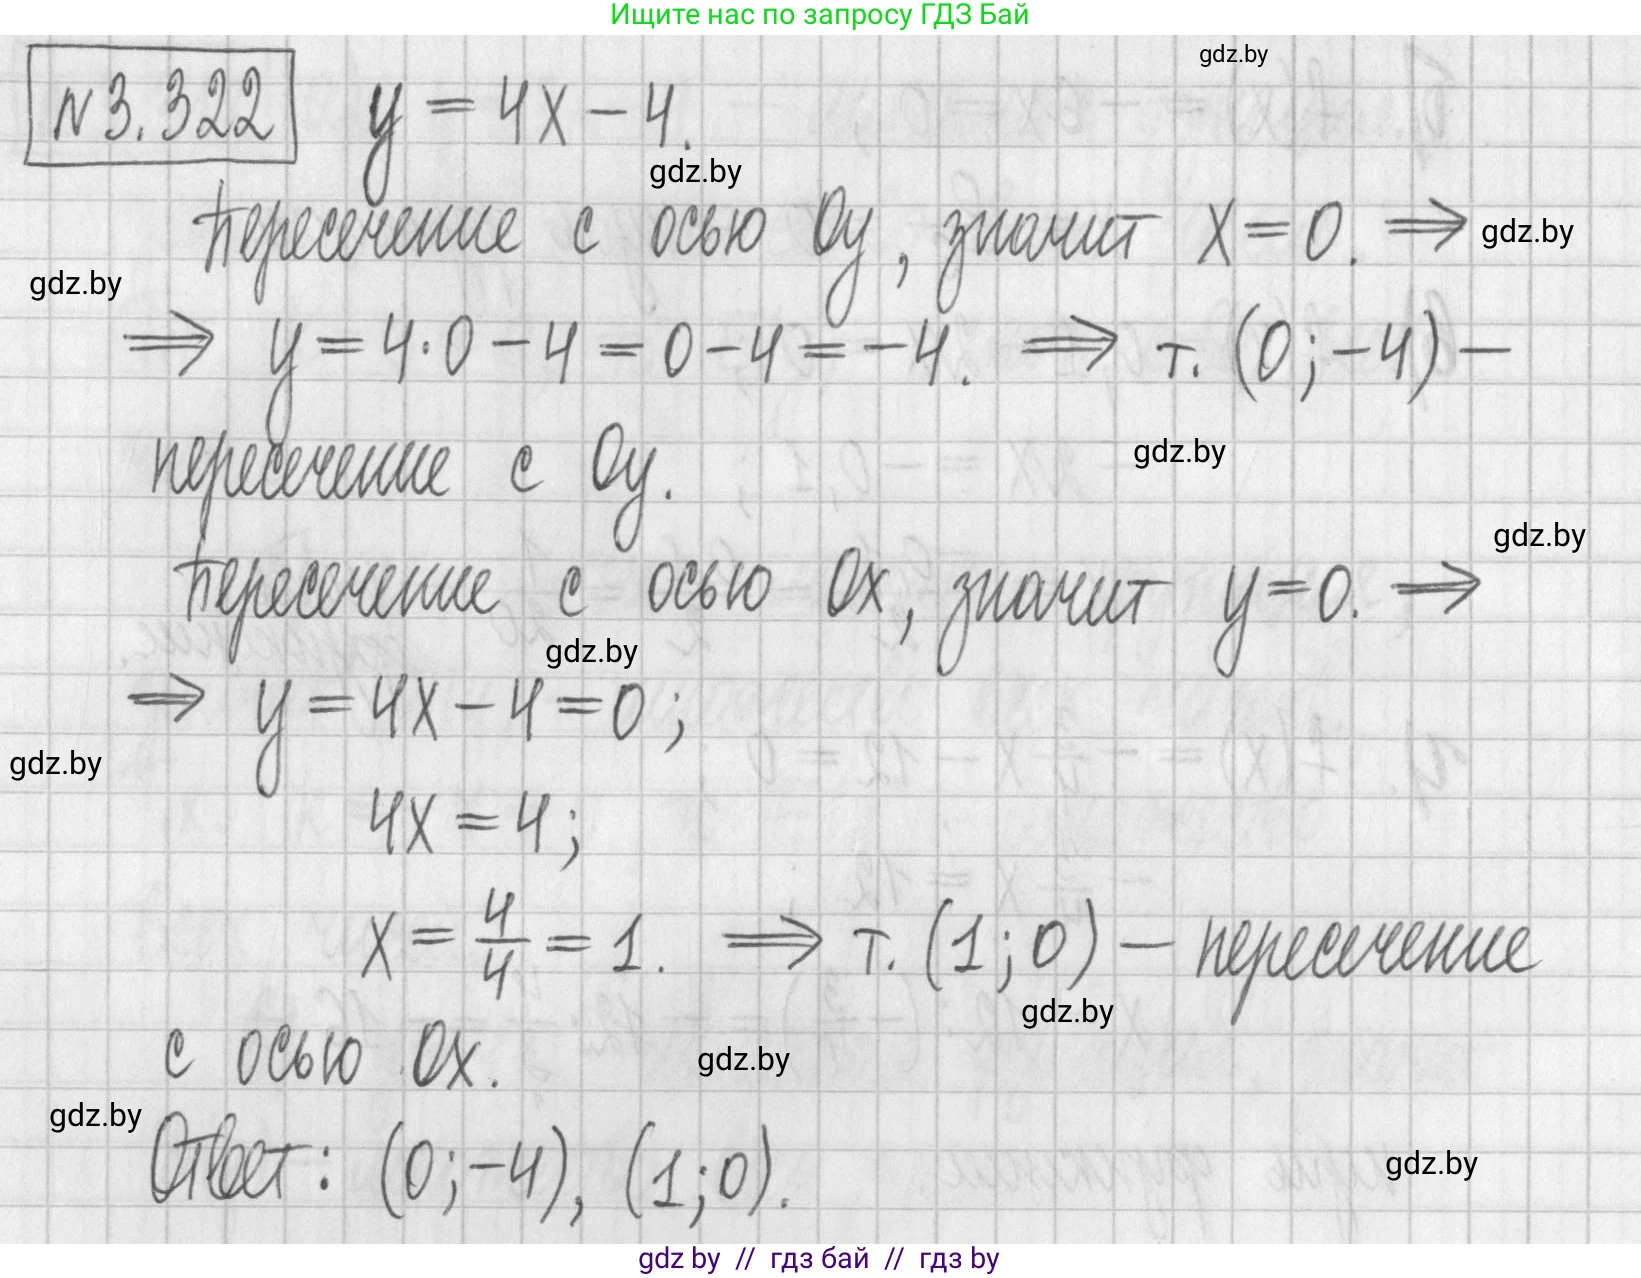 Ищите нас по запросу ГДЗ Бай
gdz.by
№3.322 y = 4x - 4.
gdz.by
Пересечение с осью Oy, значит x = 0. ⟹
gdz.by
gdz.by
⟹ y = 4·0 - 4 = 0 - 4 = -4. ⟹ т. (0; -4) -
пересечение с Oy.
gdz.by
gdz.by
Пересечение с осью Ox, значит y = 0. ⟹
gdz.by
⟹ y = 4x - 4 = 0;
gdz.by
4x = 4;
x = 4/4 = 1. ⟹ т. (1; 0) - пересечение
gdz.by
с осью Ox.
gdz.by
gdz.by
Ответ: (0; -4), (1; 0).
gdz.by
gdz by // гдз бай // гдз by